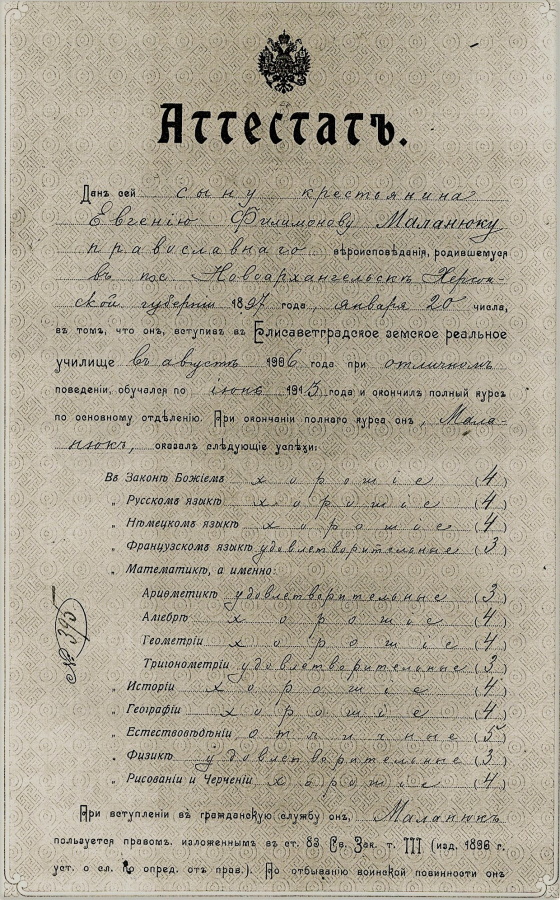 Аттестатъ.
Данъ сей сыну крестьянина
Евгенію Филимонову Маланюку
православнаго вѣроисповѣданія, родившемуся
въ пос. Новоархангельскѣ Херсон-
ской губерніи 1897 года, января 20 числа,
въ томъ, что онъ, вступивъ въ Елисаветградское земское реальное
училище въ августѣ 1906 года при отличномъ
поведеніи, обучался по іюнь 1915 года и окончилъ полный курсъ
по основному отдѣленію. При окончаніи полнаго курса онъ, Мала-
нюкъ, оказалъ слѣдующіе успѣхи:
Въ Законѣ Божіемъ хорошіе (4)
„ Русскомъ языкѣ хорошіе (4)
„ Нѣмецкомъ языкѣ хорошіе (4)
„ Французскомъ языкѣ удовлетворительные (3)
„ Математикѣ, а именно:
Ариѳметикѣ удовлетворительные (3)
Алгебрѣ хорошіе (4)
Геометріи хорошіе (4)
Тригонометріи удовлетворительные (3)
„ Исторіи хорошіе (4)
„ Географіи хорошіе (4)
„ Естествовѣдѣніи отличные (5)
„ Физикѣ удовлетворительные (3)
„ Рисованіи и Черченіи хорошіе (4)
№ 395
При вступленіи въ гражданскую службу онъ, Маланюкъ
пользуется правомъ, изложеннымъ въ ст. 83 Св. Зак. т. III (изд. 1896 г.
уст. о сл. по опред. отъ прав.). По отбыванію воинской повинности онъ